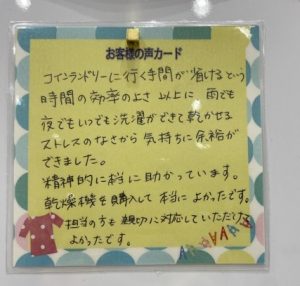 お客様の声カード
コインランドリーに行く時間が省けるという
時間の効率のよさ以上に 雨でも
夜でもいつでも洗濯ができて乾かせる
ストレスのなさから気持ちに余裕が
できました。
精神的に本当に助かっています。
乾燥機を購入して本当によかったです。
担当の方も親切に対応していただけて
よかったです。